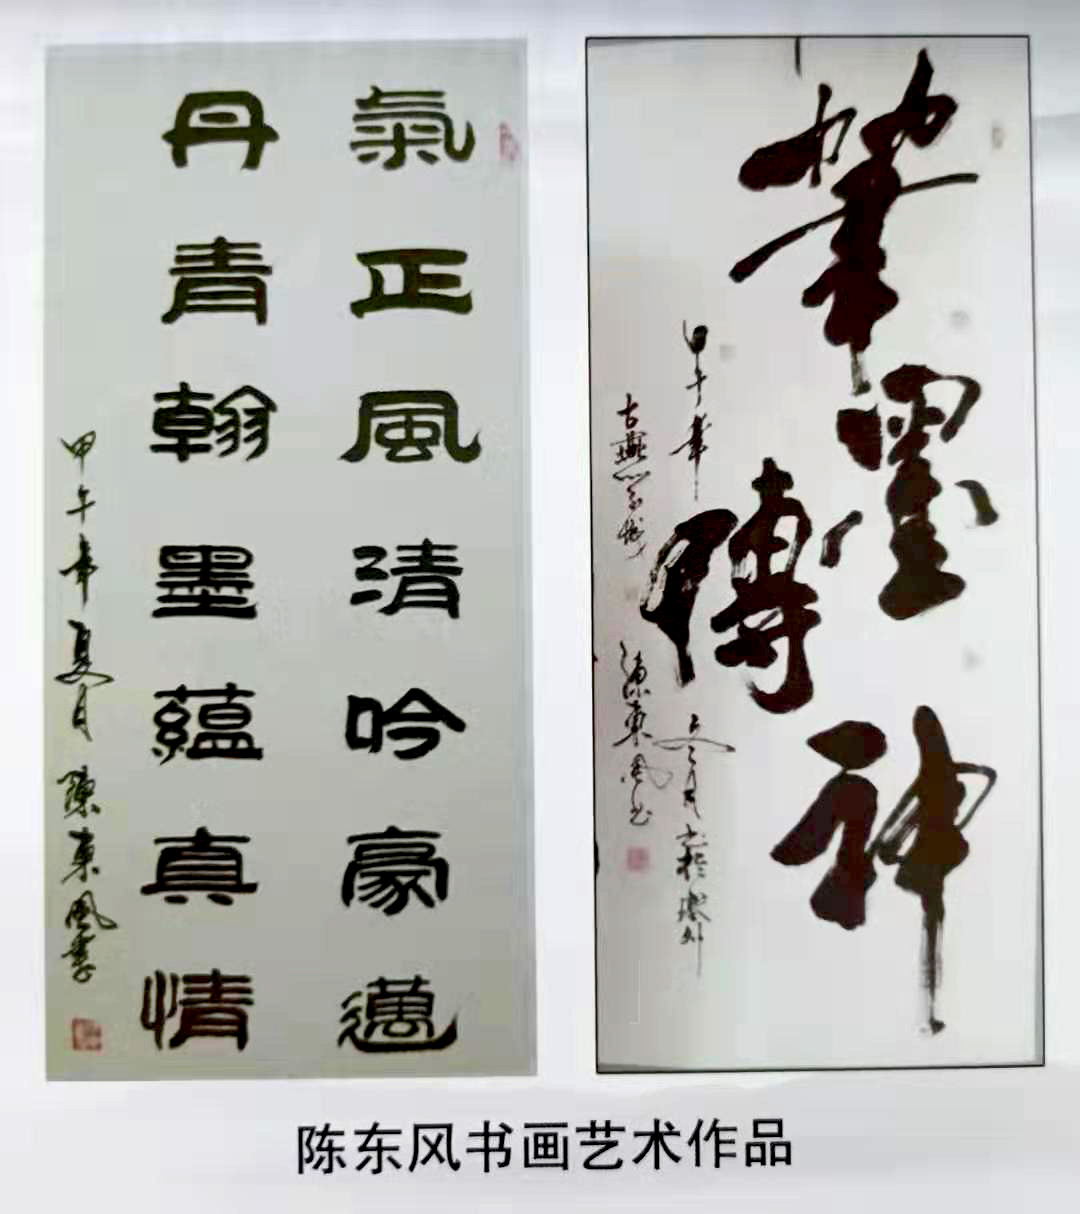 氣正風清吟豪邁
丹青翰墨蘊真情
甲午年夏月陳東風書
筆墨傳神
甲午年
古燕
陳東風书
陈东风书画艺术作品